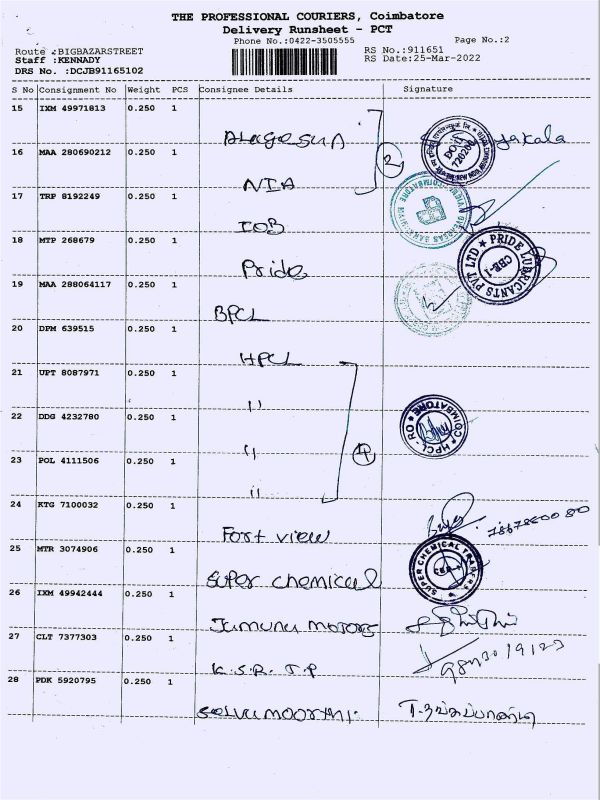 THE PROFESSIONAL COURIERS, Coimbatore
Delivery Runsheet - PCT
Phone No.:0422-3505555 Page No.:2
Route :BIGBAZARSTREET RS No.:911651
Staff :KENNADY RS Date:25-Mar-2022
DRS No. :DCJB91165102
S No Consignment No Weight PCS Consignee Details Signature
15 IXM 49971813 0.250 1
16 MAA 280690212 0.250 1
2
NIA
17 TRP 8192249 0.250 1
IOB
18 MTP 268679 0.250 1
Pride
PRIDE LUBRICANTS PVT LTD
CBE-1
19 MAA 288064117 0.250 1
BPCL
20 DPM 639515 0.250 1
HPCL
21 UPT 8087971 0.250 1
"
22 DDG 4232780 0.250 1
HPCL-RO COIMBATORE
"
23 POL 4111506 0.250 1
"
24 KTG 7100032 0.250 1
Fort view
25 MTR 3074906 0.250 1
SUPER CHEMICAL TRADERS
Super chemical
26 IXM 49942444 0.250 1
27 CLT 7377303 0.250 1
K.S.R.
28 PDK 5920795 0.250 1